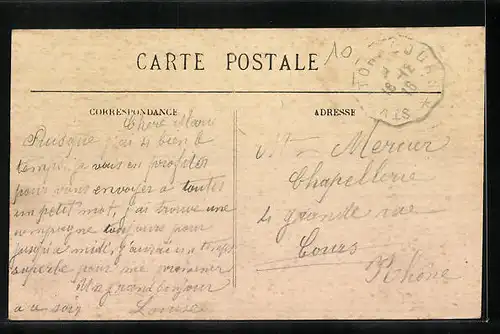 CARTE POSTALE
10
CORRESPONDANCE
ADRESSE
Chère Marie
Puisque j'ai si bien le
temps, je vous en profiter
pour vous envoyer à toutes
un petit mot, j'ai trouvé une
compagne pour
jusqu'à midi, j'aurai un temps
superbe pour me promener
Un grand bonjour
a a soir Louise
Mercier
Chapellerie
de grande rue
Cours
Rhône